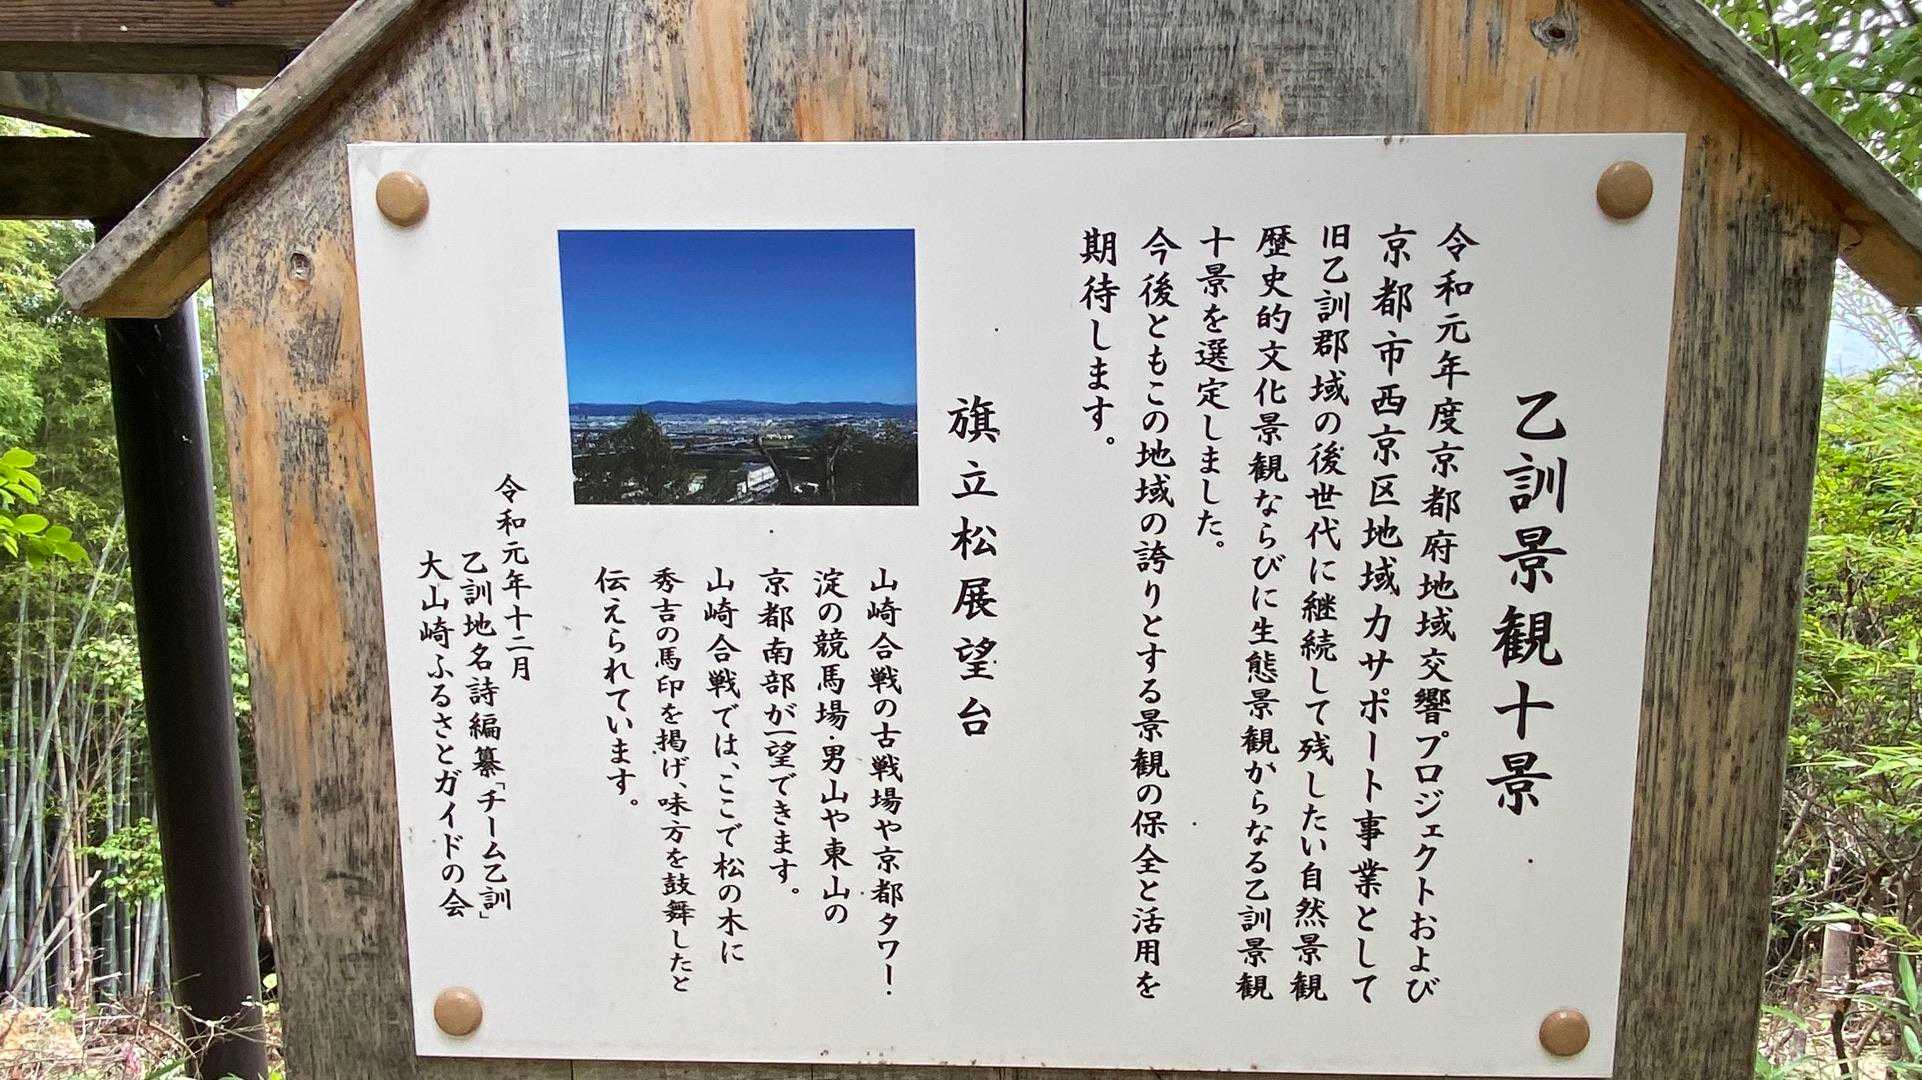 乙訓景観十景
令和元年度京都府地域交響プロジェクトおよび
京都市西京区地域力サポート事業として
旧乙訓郡域の後世代に継続して残したい自然景観
歴史的文化景観ならびに生態景観からなる乙訓景観
十景を選定しました。
今後ともこの地域の誇りとする景観の保全と活用を
期待します。
旗立松展望台
山崎合戦の古戦場や京都タワー・
淀の競馬場・男山や東山の
京都南部が一望できます。
山崎合戦では、ここで松の木に
秀吉の馬印を掲げ、味方を鼓舞したと
伝えられています。
令和元年十二月
乙訓地名詩編纂「チーム乙訓」
大山崎ふるさとガイドの会